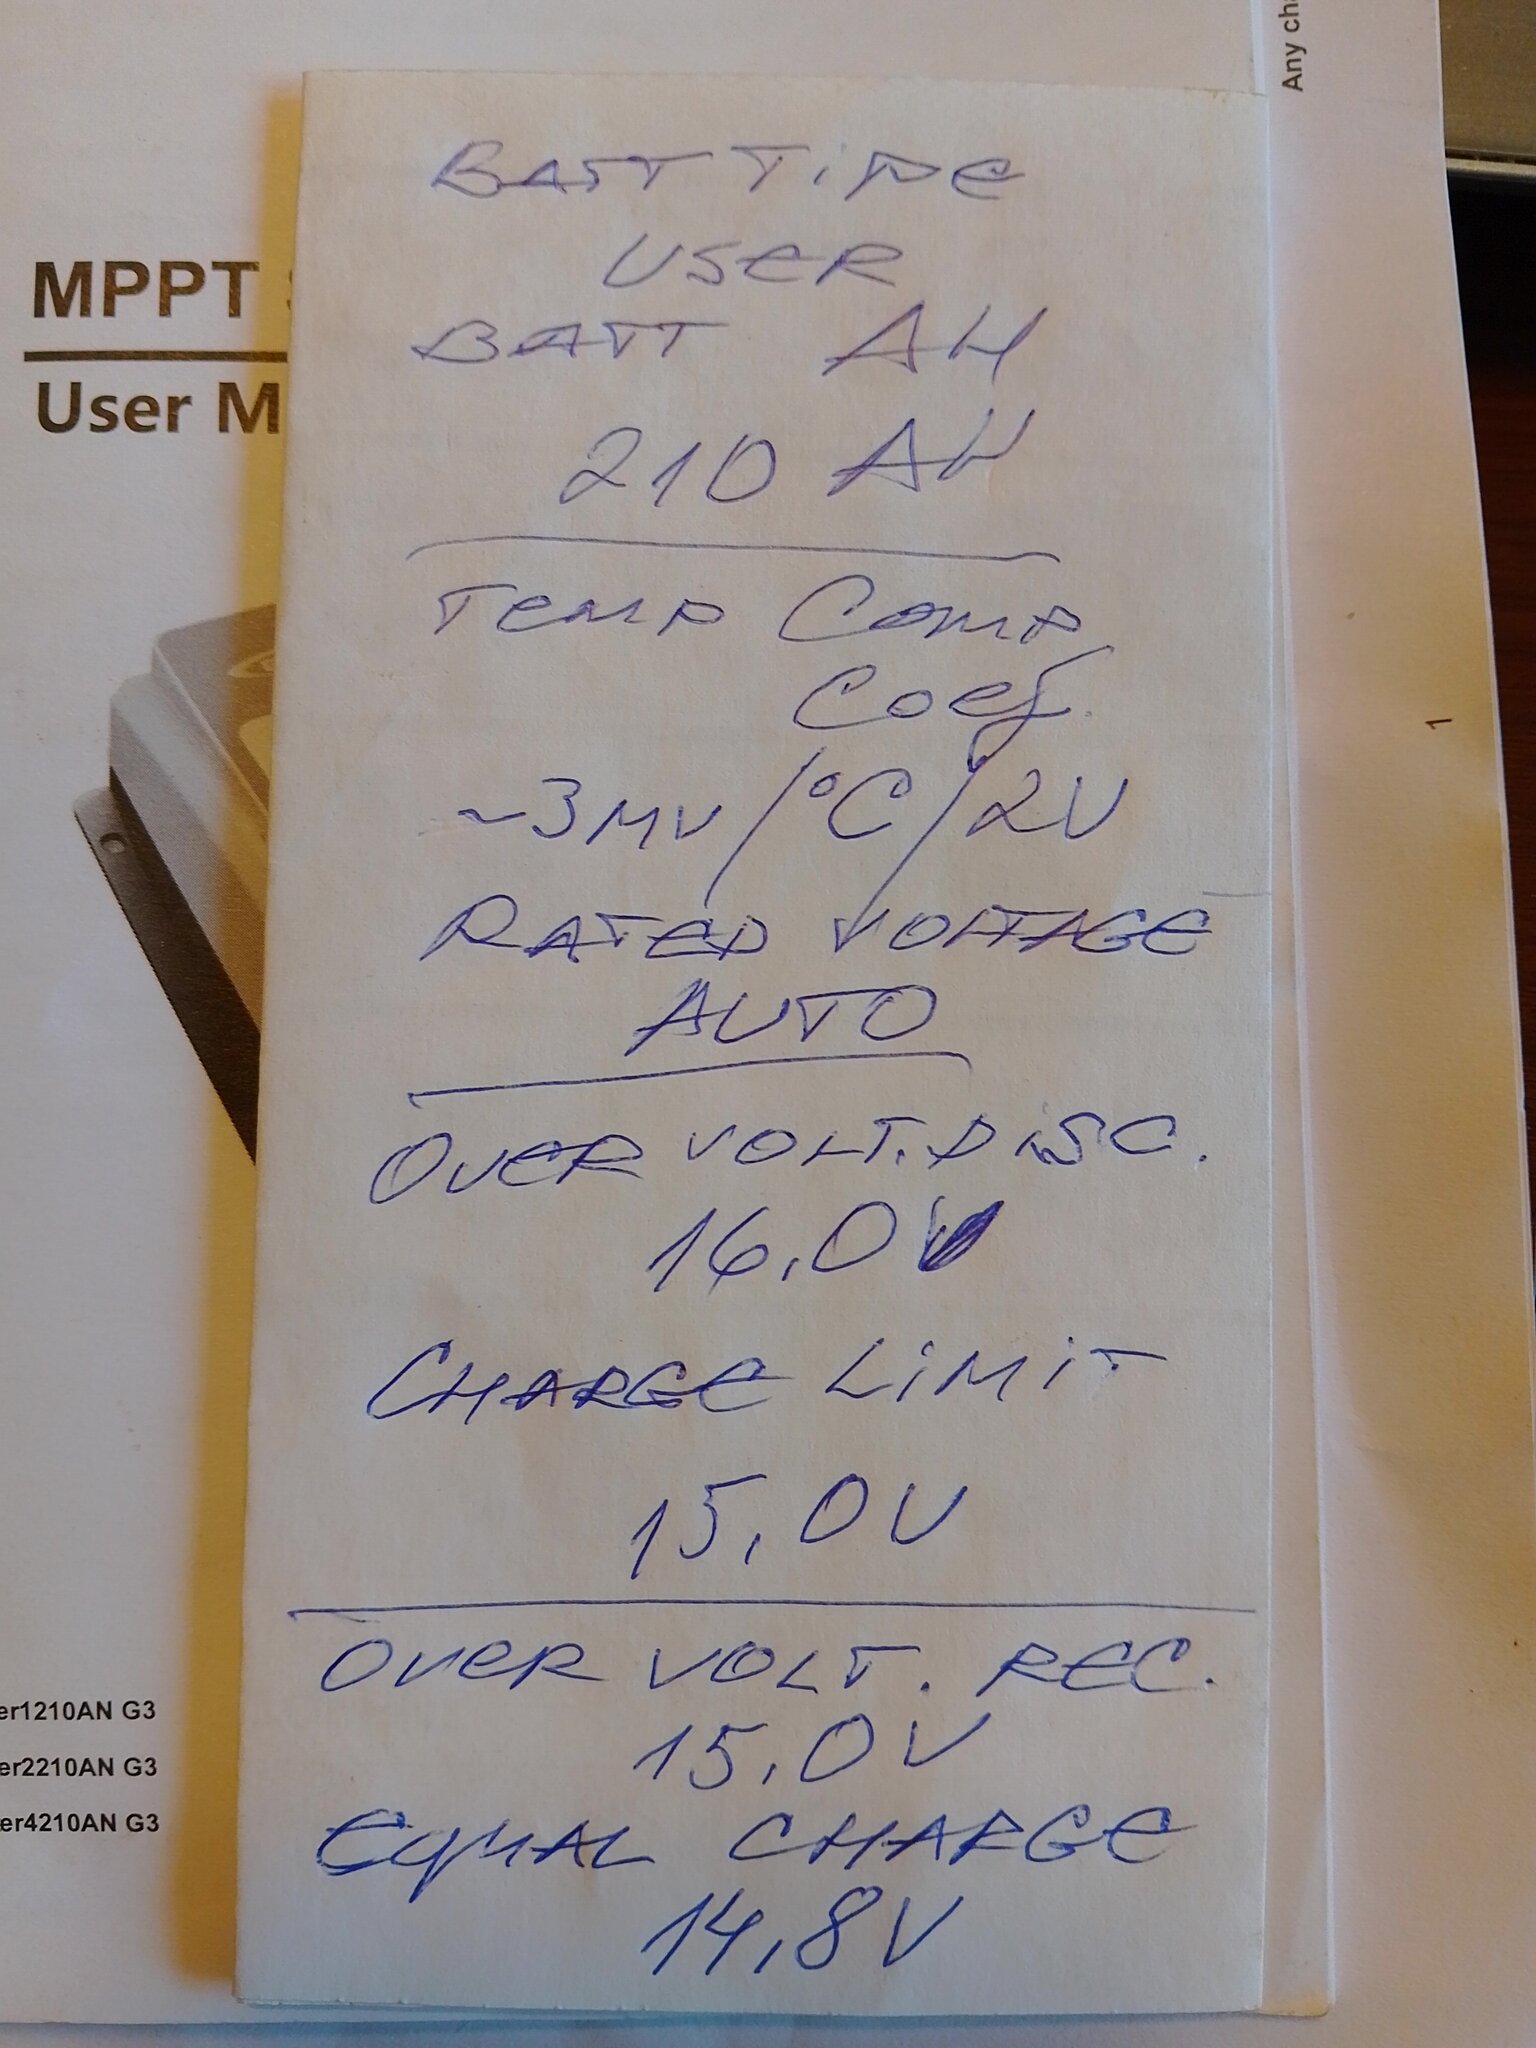 Any cha
MPPT
User M
BATT TiPE
USER
BATT AH
210 AH
TEMP COMP
COEF.
~3MV/°C/2V
RATED VOLTAGE
AUTO
OVER VOLT. DiSC.
16,0V
CHARGE LiMiT
15,0V
OVER VOLT. REC.
15,0V
EQUAL CHARGE
14,8V
er1210AN G3
er2210AN G3
er4210AN G3
1